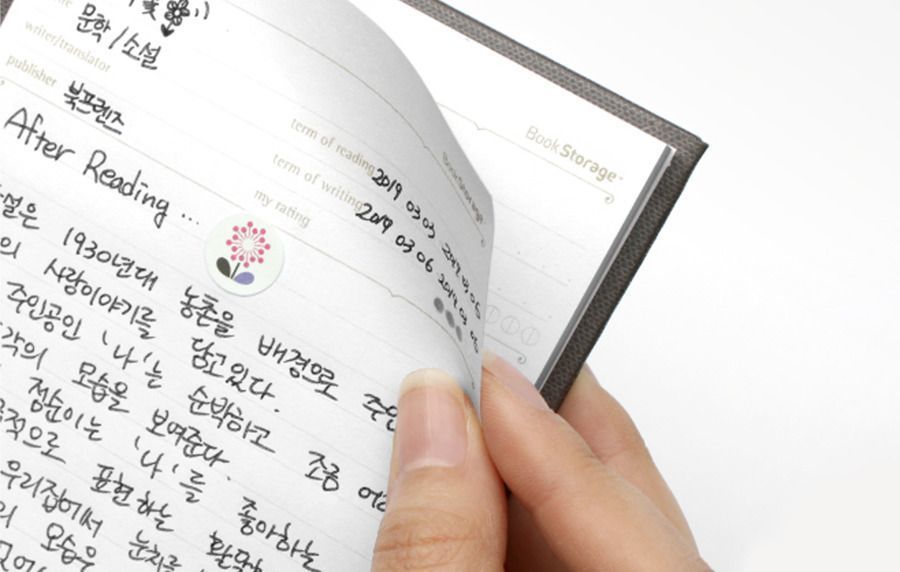 문학 / 소설
writer/translator
publisher 북프렌즈
term of reading 2019 03 03
term of writing 2019 03 06
my rating
BookStorage
BookStorage
After Reading ...
설은 1930년대 농촌을 배경으로
의 사랑이야기를 담고있다.
주인공인 '나'는 순박하고 조금
각의 모습을 보여준다.
점순이는 '나'를 좋아하는
적으로 표현하는
우리집에서 눈치를
의 모습은